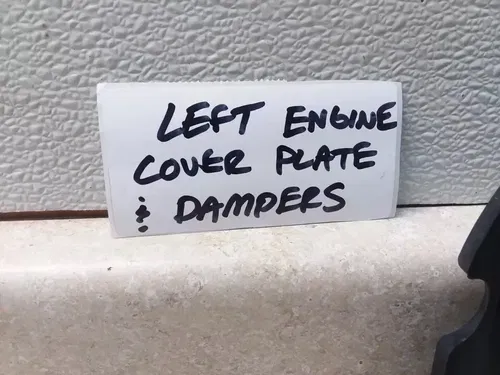 LEFT ENGINE
COVER PLATE
& DAMPERS